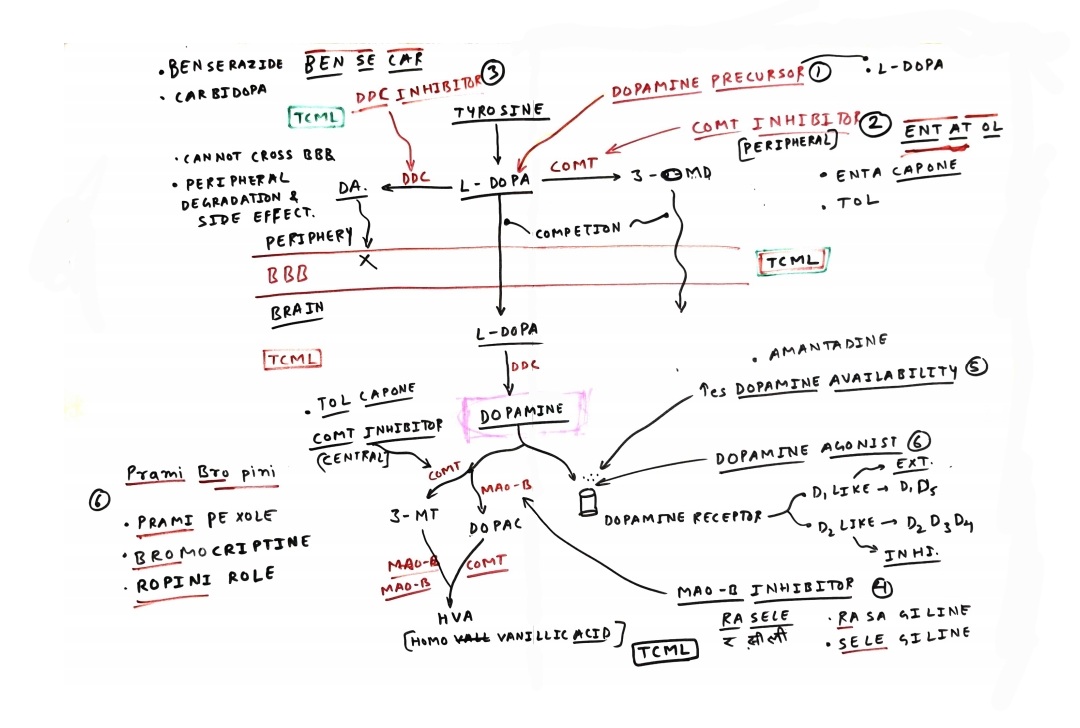 • BENSERAZIDE BEN SE CAR
• CARBIDOPA
DDC INHIBITOR ③
DOPAMINE PRECURSOR ①
• L-DOPA
TCML
TYROSINE
COMT INHIBITOR ②
[PERIPHERAL]
ENT AT OL
• ENTA CAPONE
• TOL
• CANNOT CROSS BBB
• PERIPHERAL
DEGRADATION &
SIDE EFFECT.
DA.
DDC
L-DOPA
COMT
3-OMD
COMPETION
PERIPHERY
X
BBB
TCML
BRAIN
L-DOPA
TCML
DDC
• AMANTADINE
↑es DOPAMINE AVAILABILITY ⑤
• TOL CAPONE
COMT INHIBITOR
(CENTRAL]
DOPAMINE
DOPAMINE AGONIST ⑥
EXT.
COMT
MAO-B
Prami Bro pini
⑥
• PRAMI PE XOLE
• BROMOCRIPTINE
• ROPINI ROLE
3-MT
DOPAC
DOPAMINE RECEPTOR
D₁ LIKE → D₁ D₅
D₂ LIKE → D₂ D₃ D₄
INHI.
MAO-B
MAO-B
COMT
HVA
[HOMO VALL VANILLIC ACID]
MAO-B INHIBITOR ④
RA SELE
• RASA GILINE
• SELE GILINE
TCML